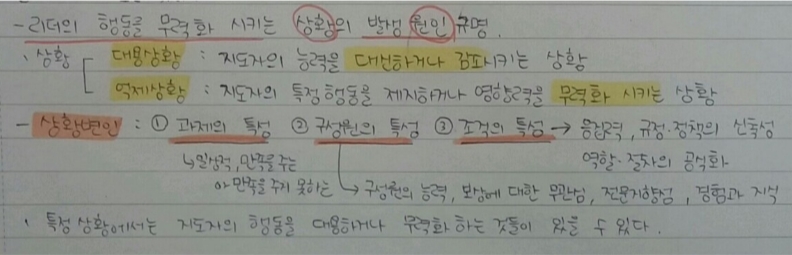 - 리더의 행동을 무력화 시키는 상황의 발생 원인 규명.
· 상황 대용상황 : 지도자의 능력을 대신하거나 감소시키는 상황
억제상황 : 지도자의 특정행동을 제지하거나 영향력을 무력화 시키는 상황
- 상황변인 : ① 과제의 특성 ② 구성원의 특성 ③ 조직의 특성 → 응집력, 규정·정책의 신축성
↳일상적, 만족을 주는 역할·절차의 공식화
만족을 주지 못하는 ↳ 구성원의 능력, 보상에 대한 무관심, 전문지향성, 경험과 지식
· 특정 상황에서는 지도자의 행동을 대용하거나 무력화 하는 것들이 있을 수 있다.